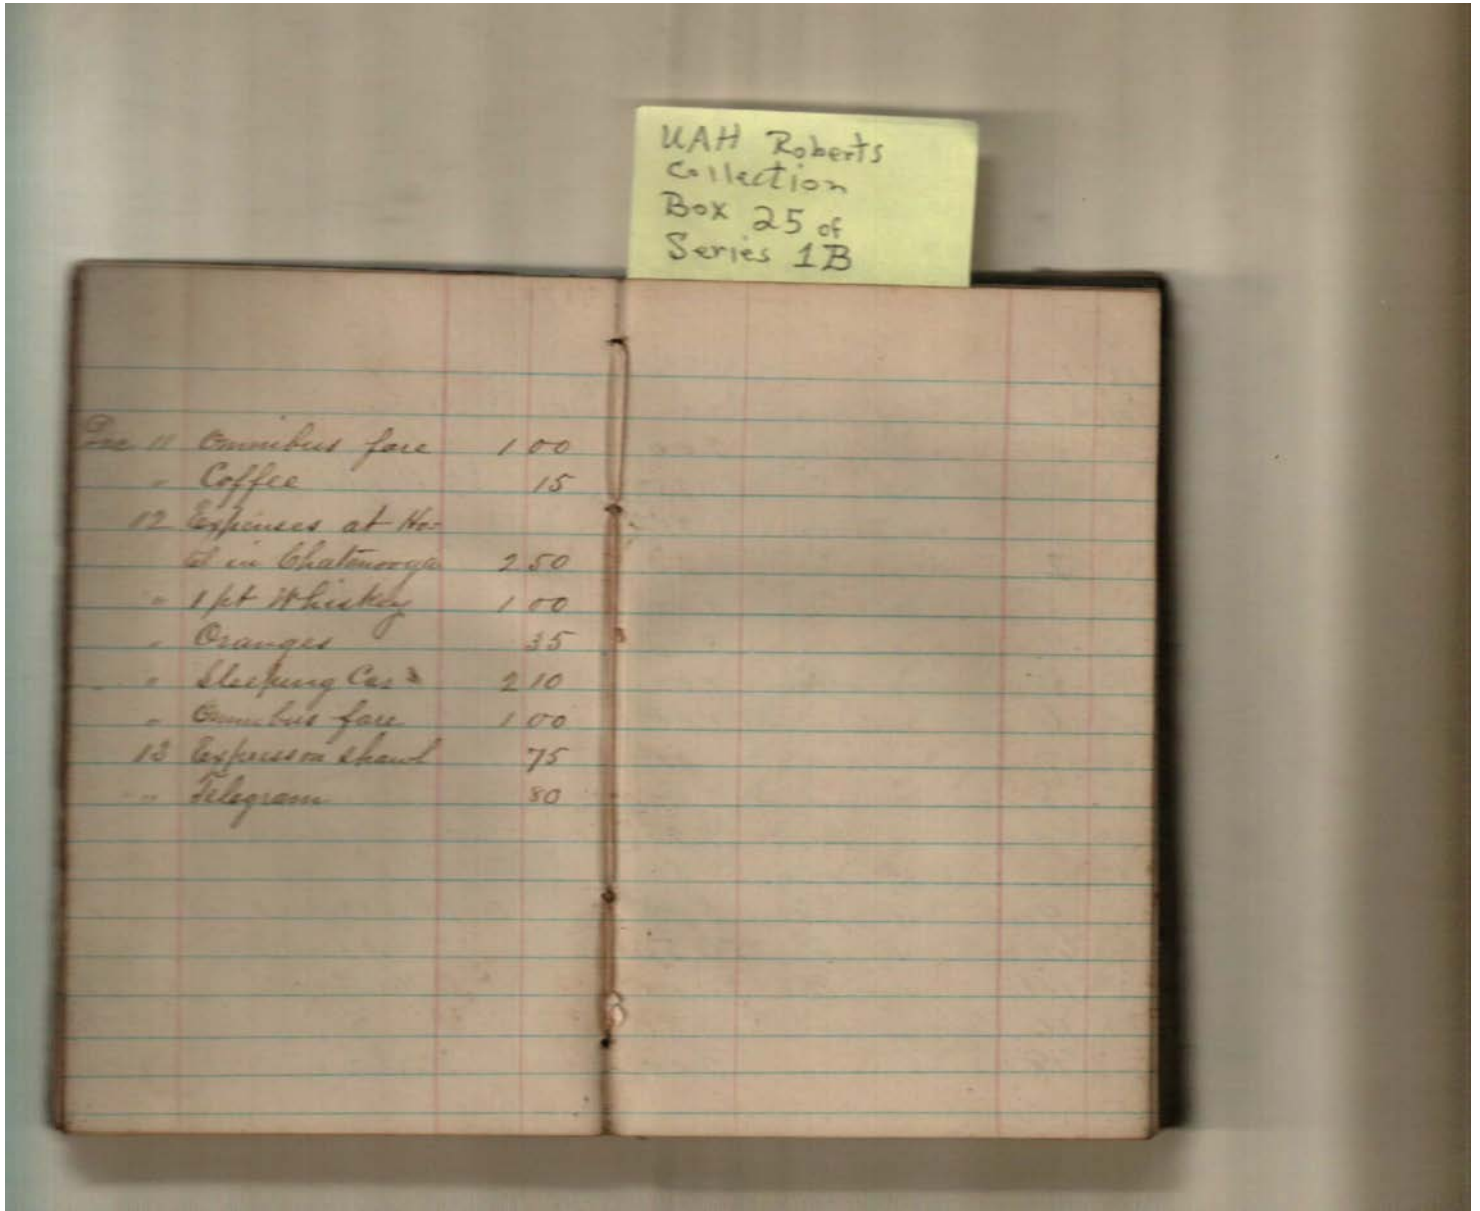 UAH Roberts
Collection
Box 25 of
Series 1B
Dec 11 Omnibus fare 1 00
" Coffee 15
12 Expenses at Ho-
tel in Chatenooga 2 50
" 1 pt Whiskey 1 00
" Oranges 35
" Sleeping Car 2 10
" Omnibus fare 1 00
13 Express on shawl 75
" Telegram 80